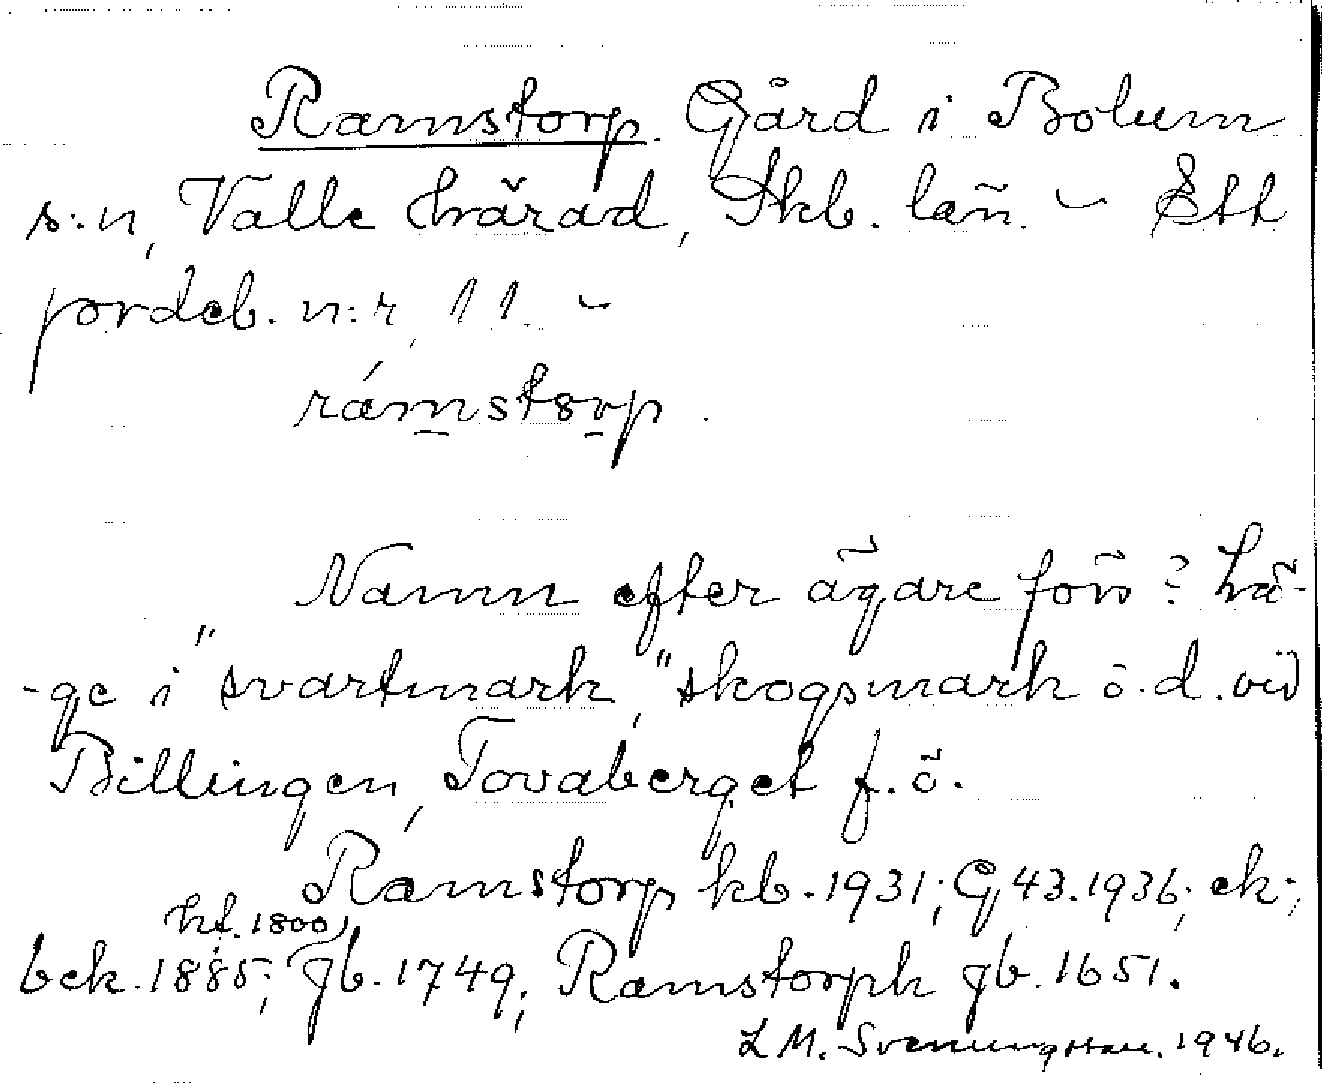 Ramstorp. Gård i Bolum
s:n, Valle härad, Skb. län. - Ett
jordeb. n:r 11. -
rámstorp.
Namn efter ägare förr? Lä-
-ge i "svartmark," skogsmark ö.d. vid
Billingen, Tovaberget f.ö.
Ramstorp kb. 1931; G 43. 1936; ek;
hf. 1800,
bek. 1885; jb. 1749; Ramstorph jb. 1651.
L M. Svenungsson. 1946.